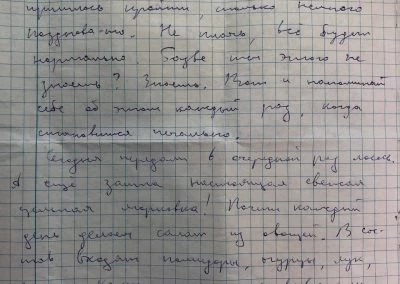 пришлось пройти, сколько немного
поздновато. Не плачь, всё будет
нормально. Разве ты этого не
знаешь? Знаешь. Вот и напоминай
себе об этом каждый раз, когда
становится печально.
Сегодня передали в очередной раз лосось.
А ещё зашла настоящая свежая
морковка! Почти каждый
день делаем салат из овощей. В сос-
тав входят помидоры, огурцы, лук,